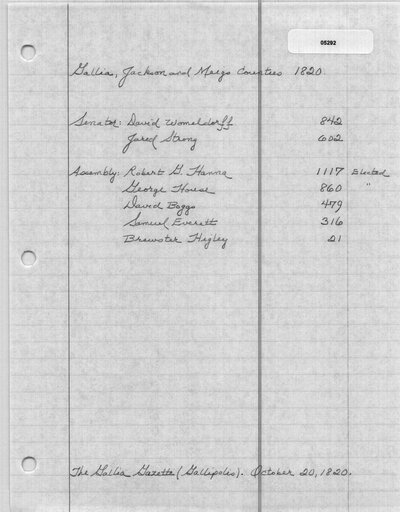 05292
Gallia, Jackson and Meigs Counties 1820
Senator: David Womeldorff 842
Jared Strong 602
Assembly: Robert G. Hanna 1117 Elected
George House 860 "
David Boggs 479
Samuel Everett 316
Brewster Higley 21
The Gallia Gazette (Gallipolis). October 20, 1820.